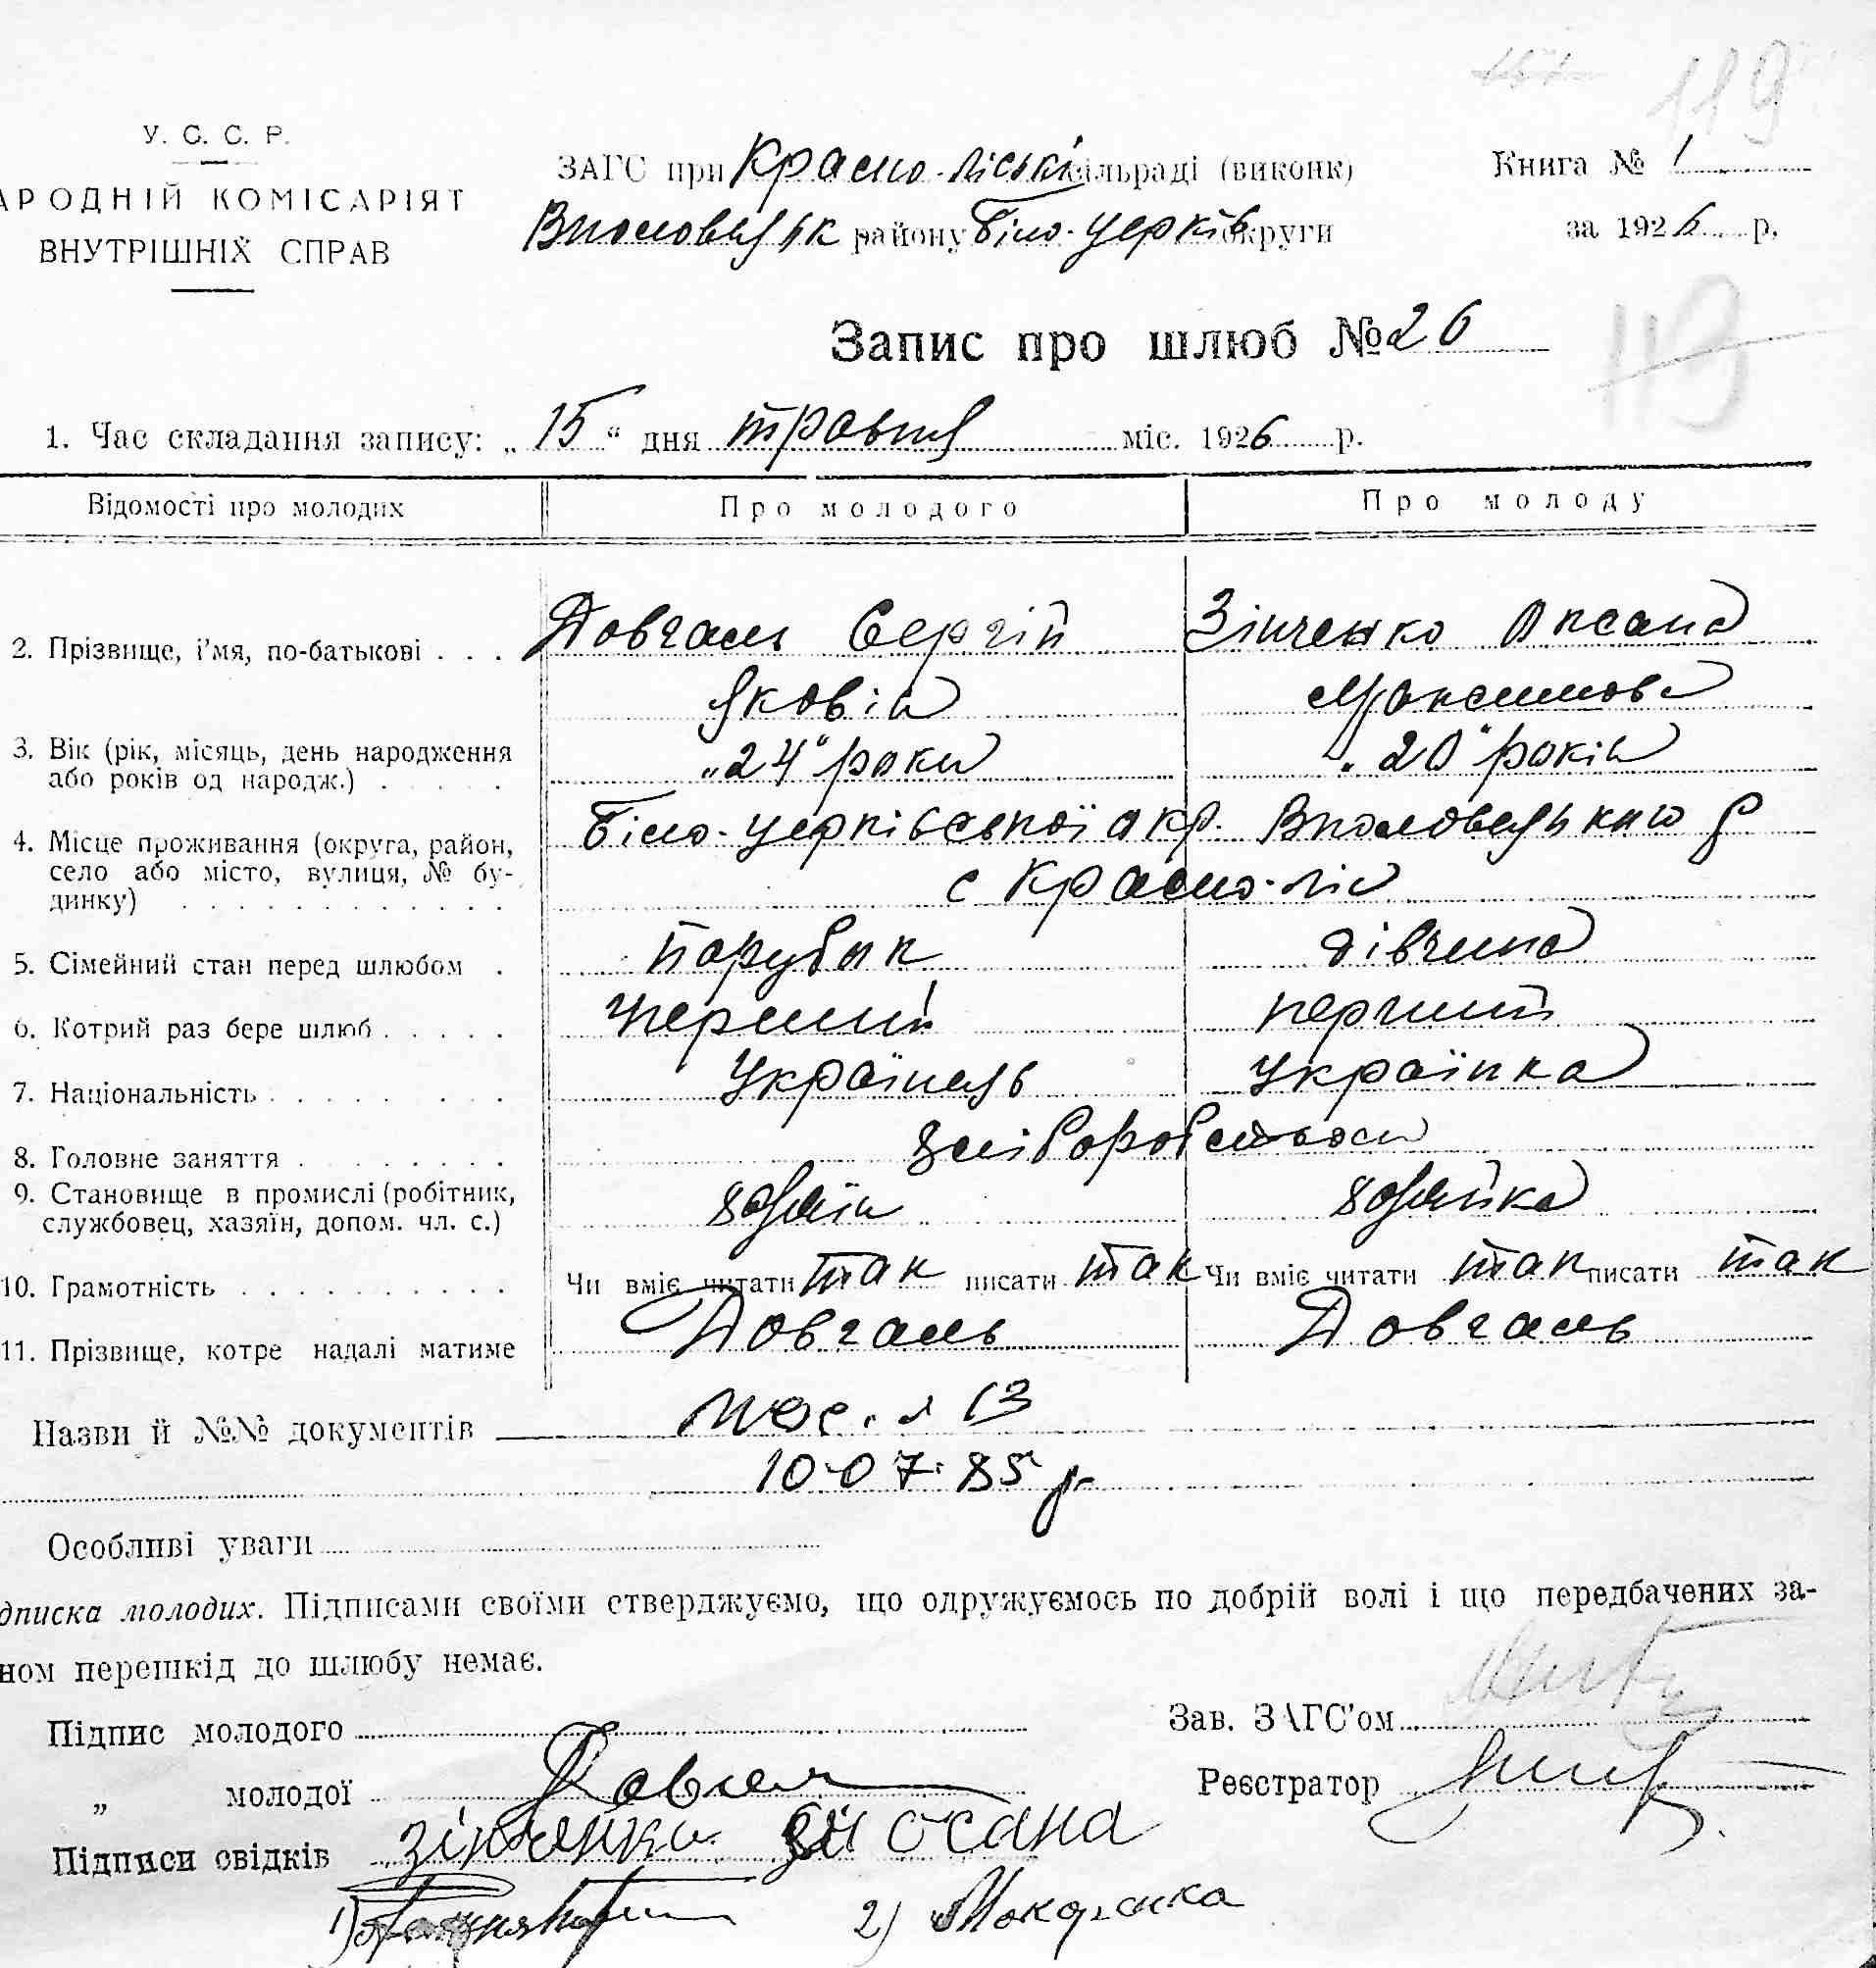 119
У. С. С. Р.
АРОДНІЙ КОМІСАРІЯТ
ВНУТРІШНІХ СПРАВ
ЗАГС при Красно-ліській сільраді (виконк)
району Біло-Церків округи
Книга № 1
за 1926 р.
Запис про шлюб № 26
113
1. Час складання запису: „15“ дня травня міс. 1926 р.
Відомості про молодих Про молодого Про молоду
2. Прізвище, і'мя, по-батькові . . . Довгаль Сергій Зінченко Оксана
Яковів Максимова
3. Вік (рік, місяць, день народження
або років од народж.) „24" роки „20" років
4. Місце проживання (округа, район,
село або місто, вулиця, № бу-
динку)
Біло-Церківської окр. р
с Красно-ліс
5. Сімейний стан перед шлюбом . парубок дівчина
6. Котрий раз бере шлюб . . . . . перший перший
7. Національність . . . . . Українець Українка
8. Головне заняття . . . . .
9. Становище в промислі (робітник,
службовец, хазяїн, допом. чл. с.) хазяїн хазяйка
10. Грамотність . . . . . Чи вміє читати так писати так Чи вміє читати так писати так
11. Прізвище, котре надалі матиме Довгаль Довгаль
Назви й №№ документів
10.07.85 р
Особливі уваги
дписка молодих. Підписами своїми стверджуємо, що одружуємось по добрій волі і що передбачених за-
ном перешкід до шлюбу немає.
Підпис молодого
Зав. ЗАГС'ом
„ молодої Довгаль
Реєстратор
Підписи свідків Зінченко
1)
2)